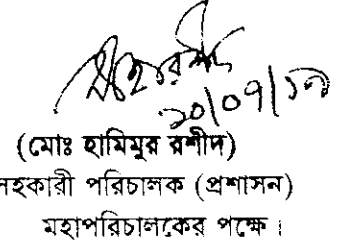 ২০/০৭/১৭
(মোঃ হামিমুর রশীদ)
সহকারী পরিচালক (প্রশাসন)
মহাপরিচালকের পক্ষে।